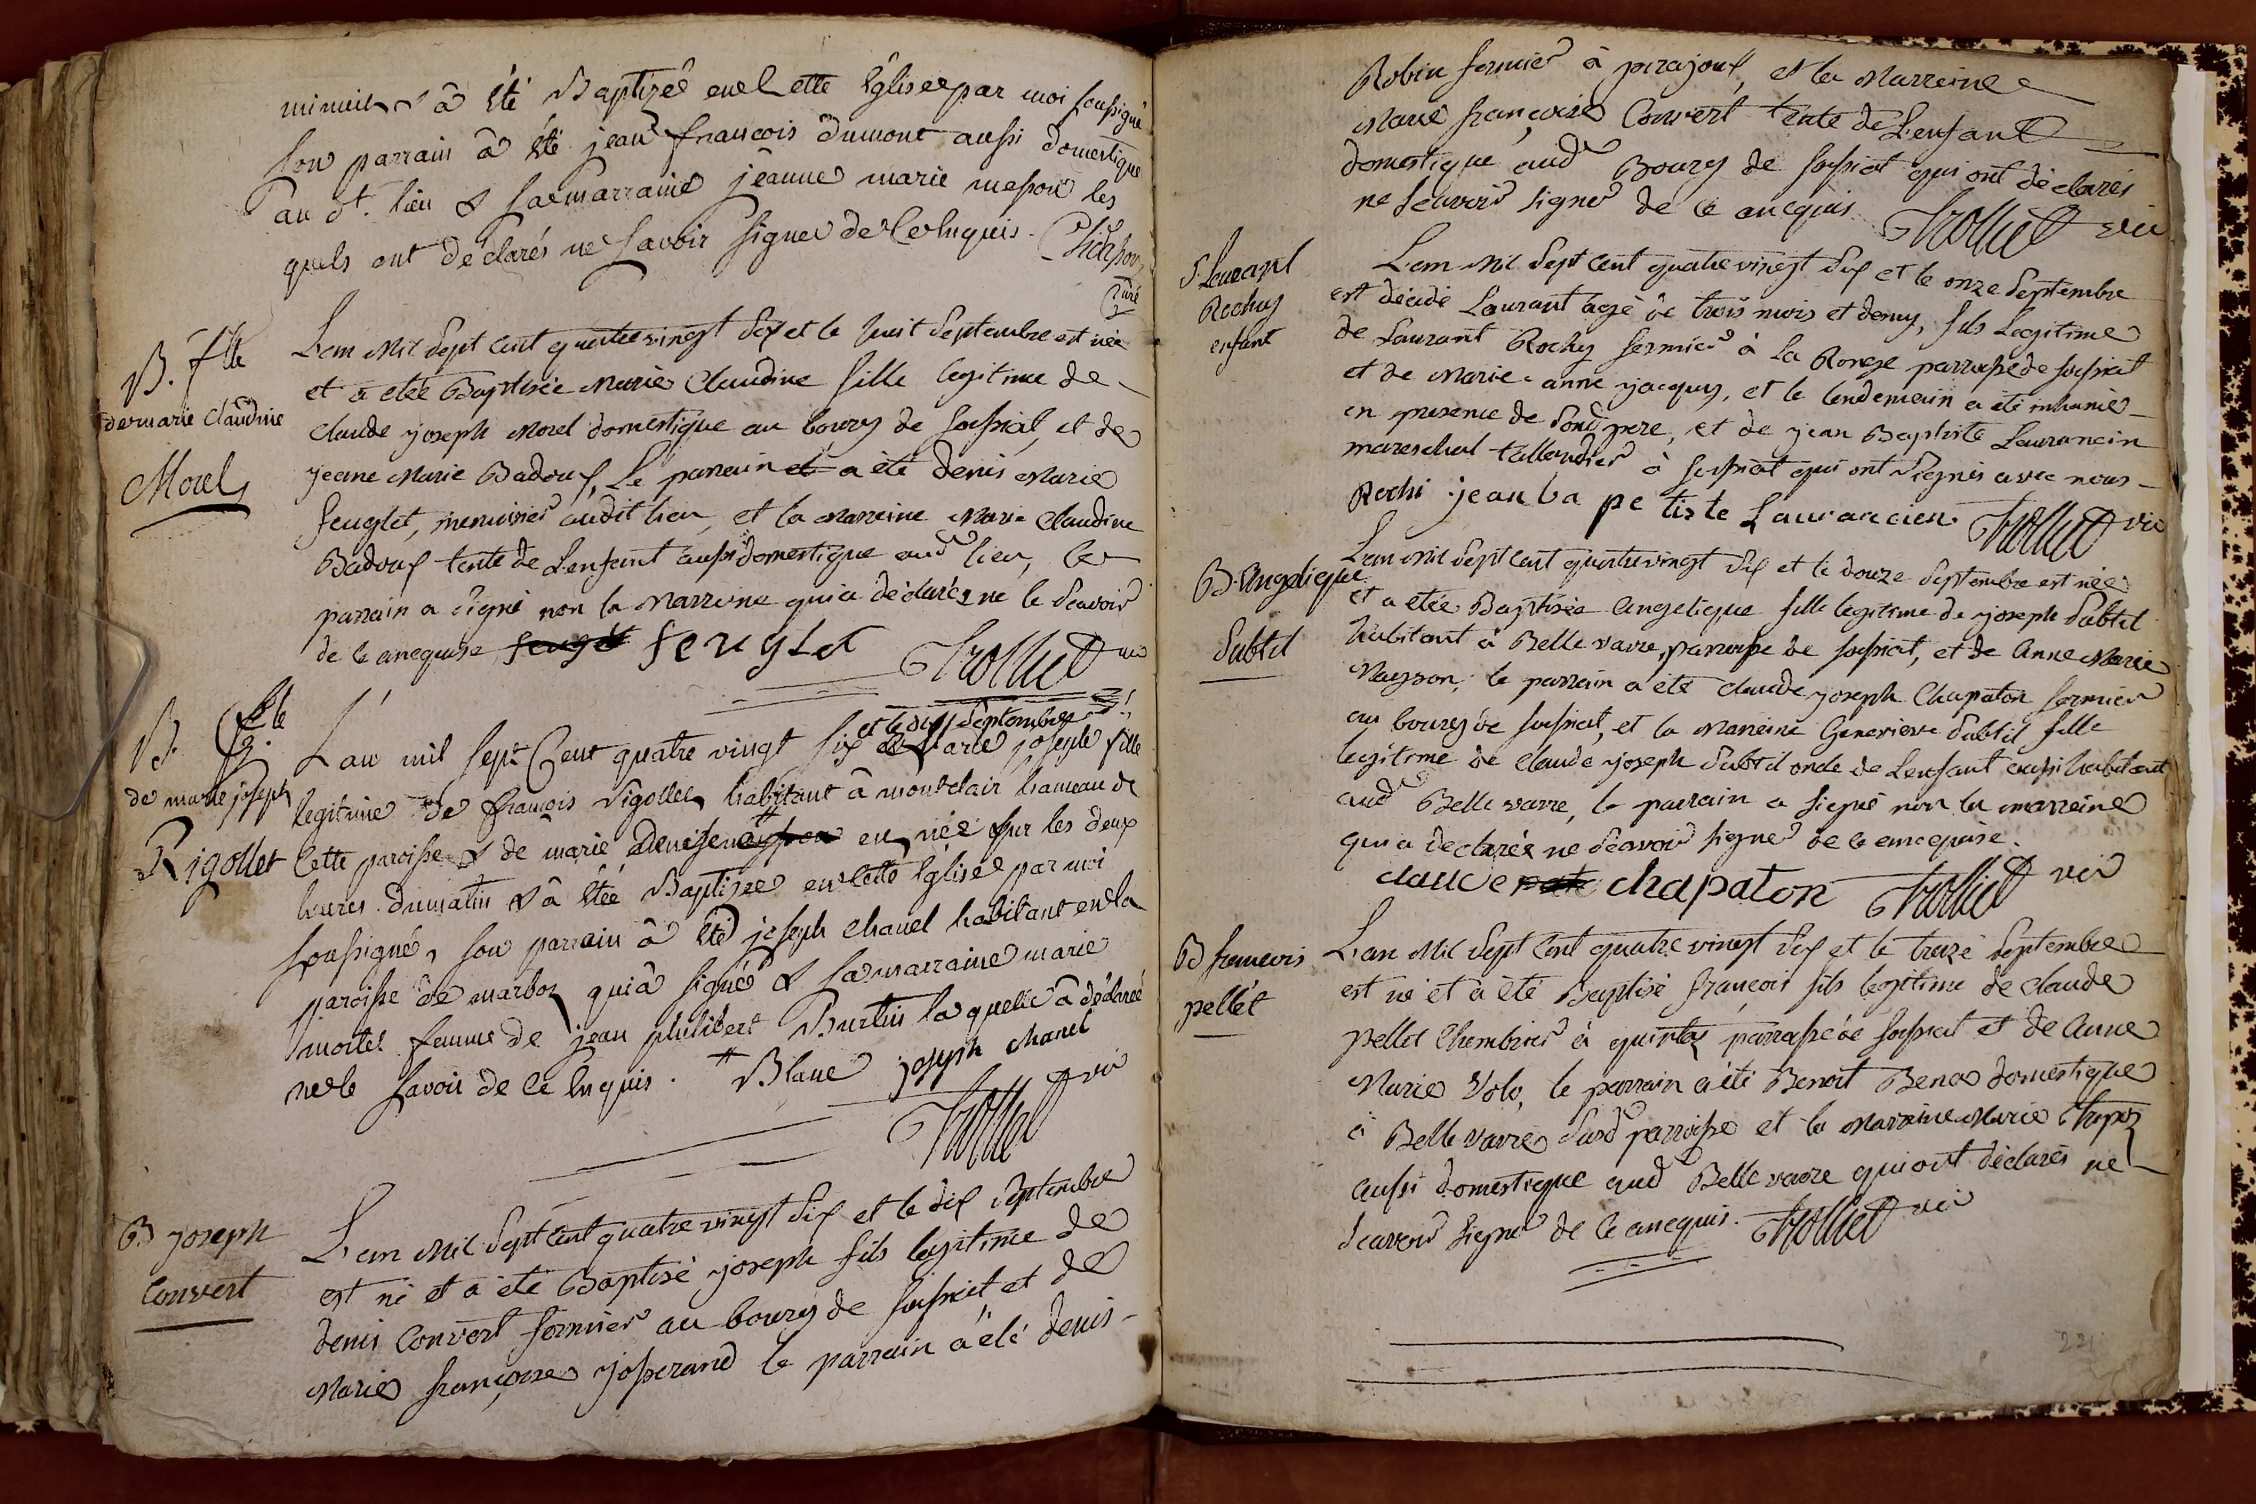 minuit & â été Baptizée en Cette Église par moi soussigné
son parrain â été jean françois dumont aussi domestique
au dt. lieu & sa marraine jeanne marie meson les
quels ont déclarés ne savoir signer de Ce Enquis. Chasson
Curé
B. flle
de marie Claudine
Morel
L'an Mil Sept Cent quatre vingt Six et le huit Septembre est née
et a etée Baptisée Marie Claudine fille legitime de
Claude joseph Morel domestique au bourg de Sossiat, et de
jeane Marie Badoux, Le parrain a été denis Marie
feuglet, menuisier audit lieu, et la Marreine Marie Claudine
Badoux tente de L'enfant aussi domestique aud lieu, le
parrain a signé non la Marreine qui a déclarée ne le Scavoir
de ce enequise feuglet Trolliet vic
B. flle
de marie joseph
Rigollet
et le dix Septembre
L'an mil sept Cent quatre vingt six Marie josephe fille
legitime de françois Rigollet habitant â montclair hameau de
Cette paroisse & de marie Denise née sur les deux
heures du matin & â étée Baptizée en Cette Eglise par moi
soussigné, son parrain â été joseph Chanel habitant en la
paroisse de marboz qui â signé & sa marraine marie
mortel femme de jean philibert Burtin la quelle â déclarée
ne le savoir de Ce Enquis. # Blanc joseph chanel
Trolliet vic
B joseph
Convert
L'an Mil Sept Cent quatre vingt Six et le dix Septembre
est né et a été Baptisé joseph fils legitime de
denis Convert fermier au bourg de Sossiat et de
Marie françoise josserand le parrain a été denis
Robin fermier à pirajoux, et la Marreine
Marie françoise Convert tente de L'enfant
domestique aud Bourg de Sossiat qui ont déclarés
ne Scavoir signer de ce enequis Trolliet vic
S. Laurant
Rochy
enfant
L'an Mil Sept Cent quatre vingt Six et le onze Septembre
est décédé Laurant agé de trois mois et demy, fils Legitime
de Laurant Rochy fermier à La Ronge parroisse de Sossiat
et de Marie anne jacquy, et le lendemain a été inhumé
en presence de Sond pere, et de jean Baptiste Laurancin
mareschal tallandier à Sossiat qui ont Signés avec nous
Rochi jean ba pe tis te Laurancien Trolliet vic
B. Angelique
Subtil
L'an Mil Sept Cent quatre vingt Six et le douze Septembre est née
et a etée Baptisée Angelique fille legitime de joseph Subtil
habitant à Belle vavre, parroisse de Sossiat, et de Anne Marie
Mayson, le parrain a été Claude joseph Chapaton fermier
au bourg de Sossiat, et la Marreine Genevieve Subtil fille
legitime de Claude joseph Subtil oncle de L'enfant aussi habitant
aud Belle vavre, le parrain a signé non la marreine
qui a declarée ne Scavoir signer de ce enequise.
claude chapaton Trolliet vic
B francois
pellét
L'an Mil Sept Cent quatre vingt Six et le treize Septembre
est né et a été Baptisé françois fils legitime de Claude
pellet Chambrier à parroisse de Sossiat et de Anne
Marie Volo, le parrain a été Benoit Benoo domestique
à Belle vavre Susd parroisse et la Marreine Marie
aussi domestique aud Belle vavre qui ont déclarés ne
Scavoir Signer de ce enequis. Trolliet vic
221